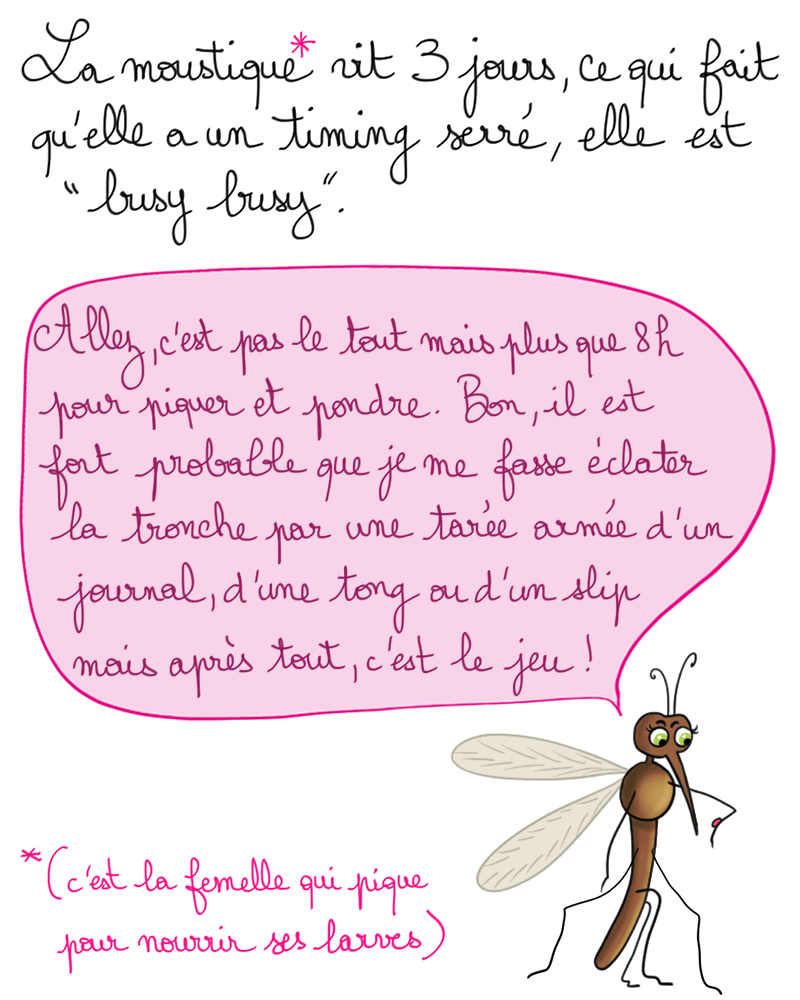 La moustique* vit 3 jours, ce qui fait
qu'elle a un timing serré, elle est
"busy busy".
Allez, c'est pas le tout mais plus que 8h
pour piquer et pondre. Bon, il est
fort probable que je me fasse éclater
la tronche par une tarée armée d'un
journal, d'une tong ou d'un slip
mais après tout, c'est le jeu !
*(c'est la femelle qui pique
pour nourrir ses larves)